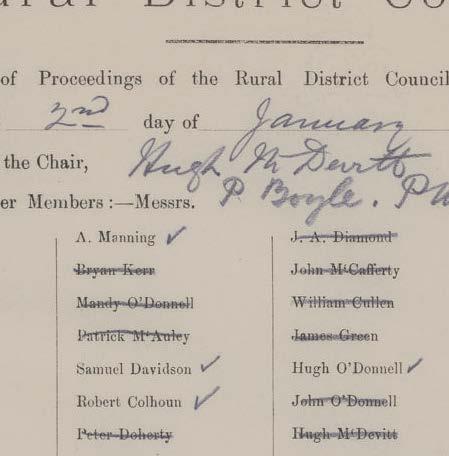 Rural District Co
of Proceedings of the Rural District Council
2nd day of January
the Chair, Hugh McDevitt
er Members :—Messrs. P. Boyle. P
A. Manning ✓
Bryan Kerr
Mandy O'Donnell
Patrick M'Auley
Samuel Davidson ✓
Robert Colhoun ✓
Peter Doherty
J. A. Diamond
John M'Cafferty
William Cullen
James Green
Hugh O'Donnell ✓
John O'Donnell
Hugh M'Devitt